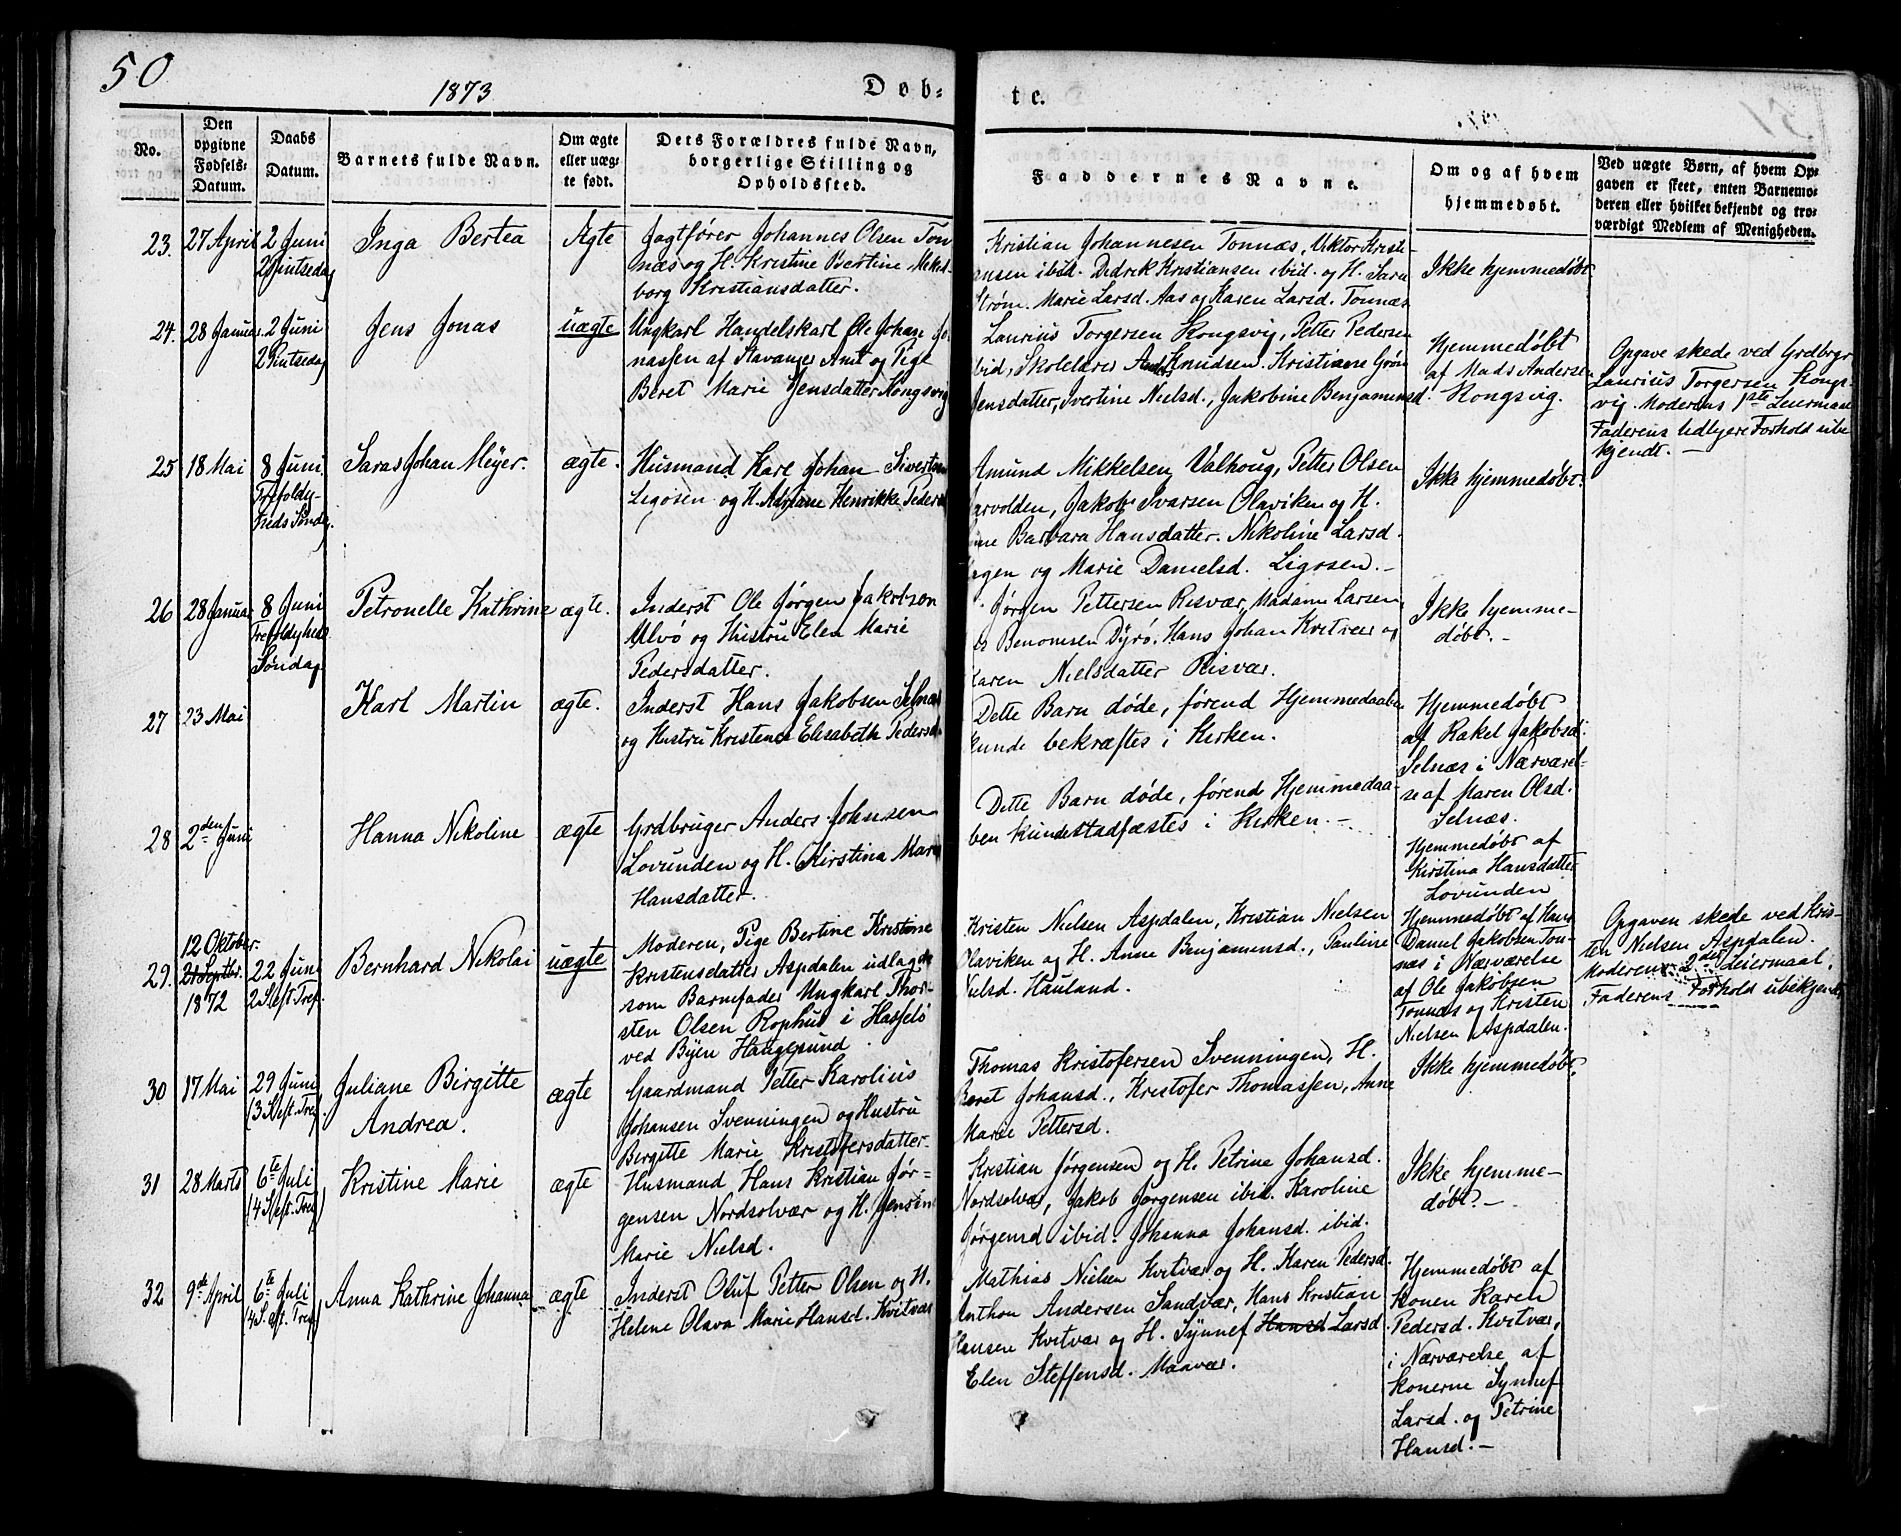 50
1873
Døb-
te.
51
No.
Den opgivne Fødsels-Datum.
Daabs Datum.
Barnets fulde Navn.
Om ægte eller uæg-te født.
Dets Forældres fulde Navn, borgerlige Stilling og Opholdssted.
Faddernes Navne.
Om og af hvem hjemmedøbt.
Ved uægte Børn, af hvem Op-gaven er skeet, enten Barnemo-deren eller hvilket bekjendt og tro-værdigt Medlem af Menigheden.
23. 27 April 2 Juni
2 Pintsedag
Inga Bertea
Ægte
Jagtfører Johannes Olsen Ton
næs og H. Kristine Bertine Mekel-
borg Kristiansdatter.
Kristian Johannesen Tonnæs, Viktor Kristi-
ansen ibid. Didrik Kristiansen ibid. og H. Sara
Strøm. Marie Larsd. Aas og Karen Larsd. Tonnæs
Ikke hjemmedøbt
24. 28 Januar 2 Juni
2 Pintsedag
Jens Jonas
uægte
Ungkarl Handelskarl Ole Johan Jo-
nassen af Stavanger Amt og Pige
Beret Marie Jensdatter Kongsvig
Laurius Torgersen Kongsvig, Petter Pedersen
ibid, Skolelærer Anders Knudsen. Kristiane Grøn
Jensdatter, Ivertine Nielsd., Jakobine Benjaminsd.
Hjemmedøbt
af Mads Andersen
Kongsvig.
Opgave skede ved Grdbrgr
Laurius Torgersen Kongs-
vig. Moderens 1ste Leiermaal
Faderens tidligere Forhold ube
kjendt.
25 18 Mai 8 Juni
Trefoldig-
heds Søndg.
Saras Johan Meyer.
ægte.
Husmand Karl Johan Sivertsen
Ligosen og H. Adriane Henrikke Peders
Amund Mikkelsen Valhoug, Petter Olsen
arvolden, Jakob Ivarsen Olaviken og H.
ine Barbara Hansdatter. Nikoline Larsd.
agen og Marie Danielsd. Ligosen.
Ikke hjemmedøbt.
26 28 Januar 8 Juni
Trefoldigheds
Søndag
Petronelle Kathrine
ægte.
Inderst Ole Jørgen Jakobsen
Ulvø og Hustru Elen Marie
Pedersdatter.
Jørgen Pettersen Risvær, Madame Larsen,
Benomsen Dyrø. Hans Johan Kvitvær og
Karen Nielsdatter Risvær.
Ikke hjemme-
døbt.
27 23 Mai
Karl Martin
ægte.
Inderst Hans Jakobsen Selnæs
og Hustru Kristence Elisabeth Pedersd.
Dette Barn døde, førend Hjemmedaaben
kunde bekræftes i Kirken.
Hjemmedøbt
af Rakel Jakobsd.
Selnæs i Nærværel-
se af Maren Olsd.
Selnæs.
28 2den Juni
Hanna Nikoline
ægte
Grdbruger Anders Johnsen
Lovunden og H. Kirstina Mar
Hansdatter.
Dette Barn døde, førend Hjemmedaa-
ben kunde stadfæstes i Kirken.
Hjemmedøbt af
Kirstina Hansdatter
Lovunden
29. 12 Oktober. 21 Septbr. 1872
22 Juni
2 S. eft. Tref.
Bernhard Nikolai
uægte
Moderen, Pige Bertine Kristine
Kristensdatter Aspdalen udlagde
som Barnefader Ungkarl Thor-
sten Olsen Rophus i Hasselø
ved Byen Haugesund.
Kristen Nielsen Aspdalen, Kristian Nielsen
Olaviken og H. Anne Benjaminsd., Pauline
Nielsd. Hauland.
Hjemmedøbt af Hans
Daniel Jakobsen Ton-
næs i Nærværelse
af Ole Jakobsen
Tonnæs og Kristen
Nielsen Aspdalen.
Opgaven skede ved Kris-
ten Nielsen Aspdalen.
Moderens 2det Leiermaal.
Faderens Forhold ubekjendt
30 17 Mai 29 Juni
(3 S. eft. Tref.)
Juliane Birgitte
Andrea.
ægte
Gaardmand Petter Karolius
Johansen Svenningen og Hustru
Birgitte Marie Kristofersdatter
Thomas Kristofersen Svenningen, H.
Beret Johansd., Kristofer Thomassen, Anne
Marie Pettersd.
Ikke hjemmedøbt.
31 28 Marts 6te Juli
(4 S. eft. Tref.)
Kristine Marie
ægte
Husmand Hans Kristian Jør-
gensen Nordsolvær og H. Jensin
Marie Nielsd.
Kristian Jørgensen og H. Petrine Johansd.
Nordsolvær, Jakob Jørgensen ibid. Karoline
Jørgensd ibid. Johanna Johansd. ibid.
Ikke hjemme-
døbt.
32 9de April 6te Juli
(4 S. eft. Tref.)
Anna Kathrine Johanna
ægte
Inderst Oluf Petter Olsen og H.
Helene Olava Marie Hansd. Kvitvær
Mathias Nielsen Kvitvær og H. Karen Pedersd.
Anthon Andersen Sandvær, Hans Kristian
Hansen Kvitvær og H. Synnef Hansd Larsd.
Elen Steffensd. Maavær.
Hjemmedøbt af
Konen Karen
Pedersd. Kvitvær,
i Nærværelse af
Konerne Synnef
Larsd. og Petrine
Hansd.